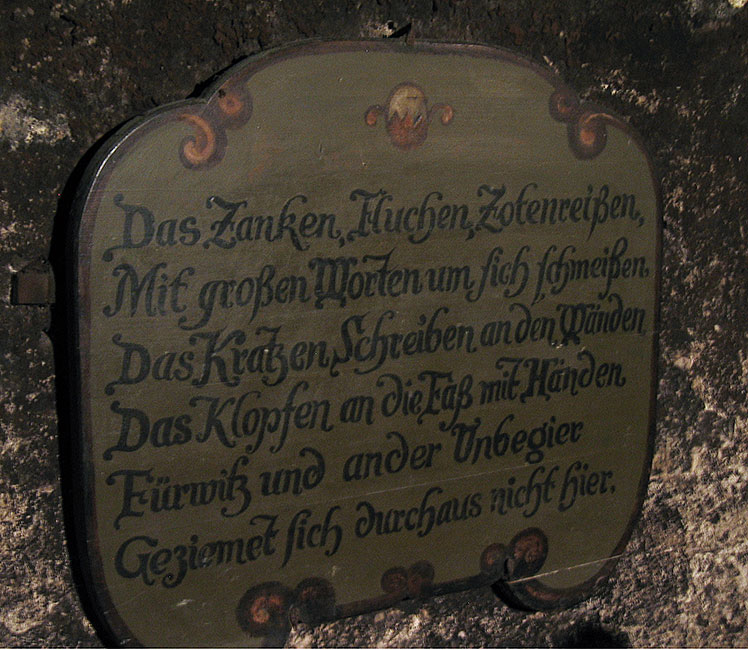 Das Zanken, Fluchen, Zotenreißen,
Mit großen Worten um sich schmeißen
Das Kratzen, Schreiben an den Wänden
Das Klopfen an die Faß mit Händen
Fürwitz und ander Unbegier
Geziemet sich durchaus nicht hier.